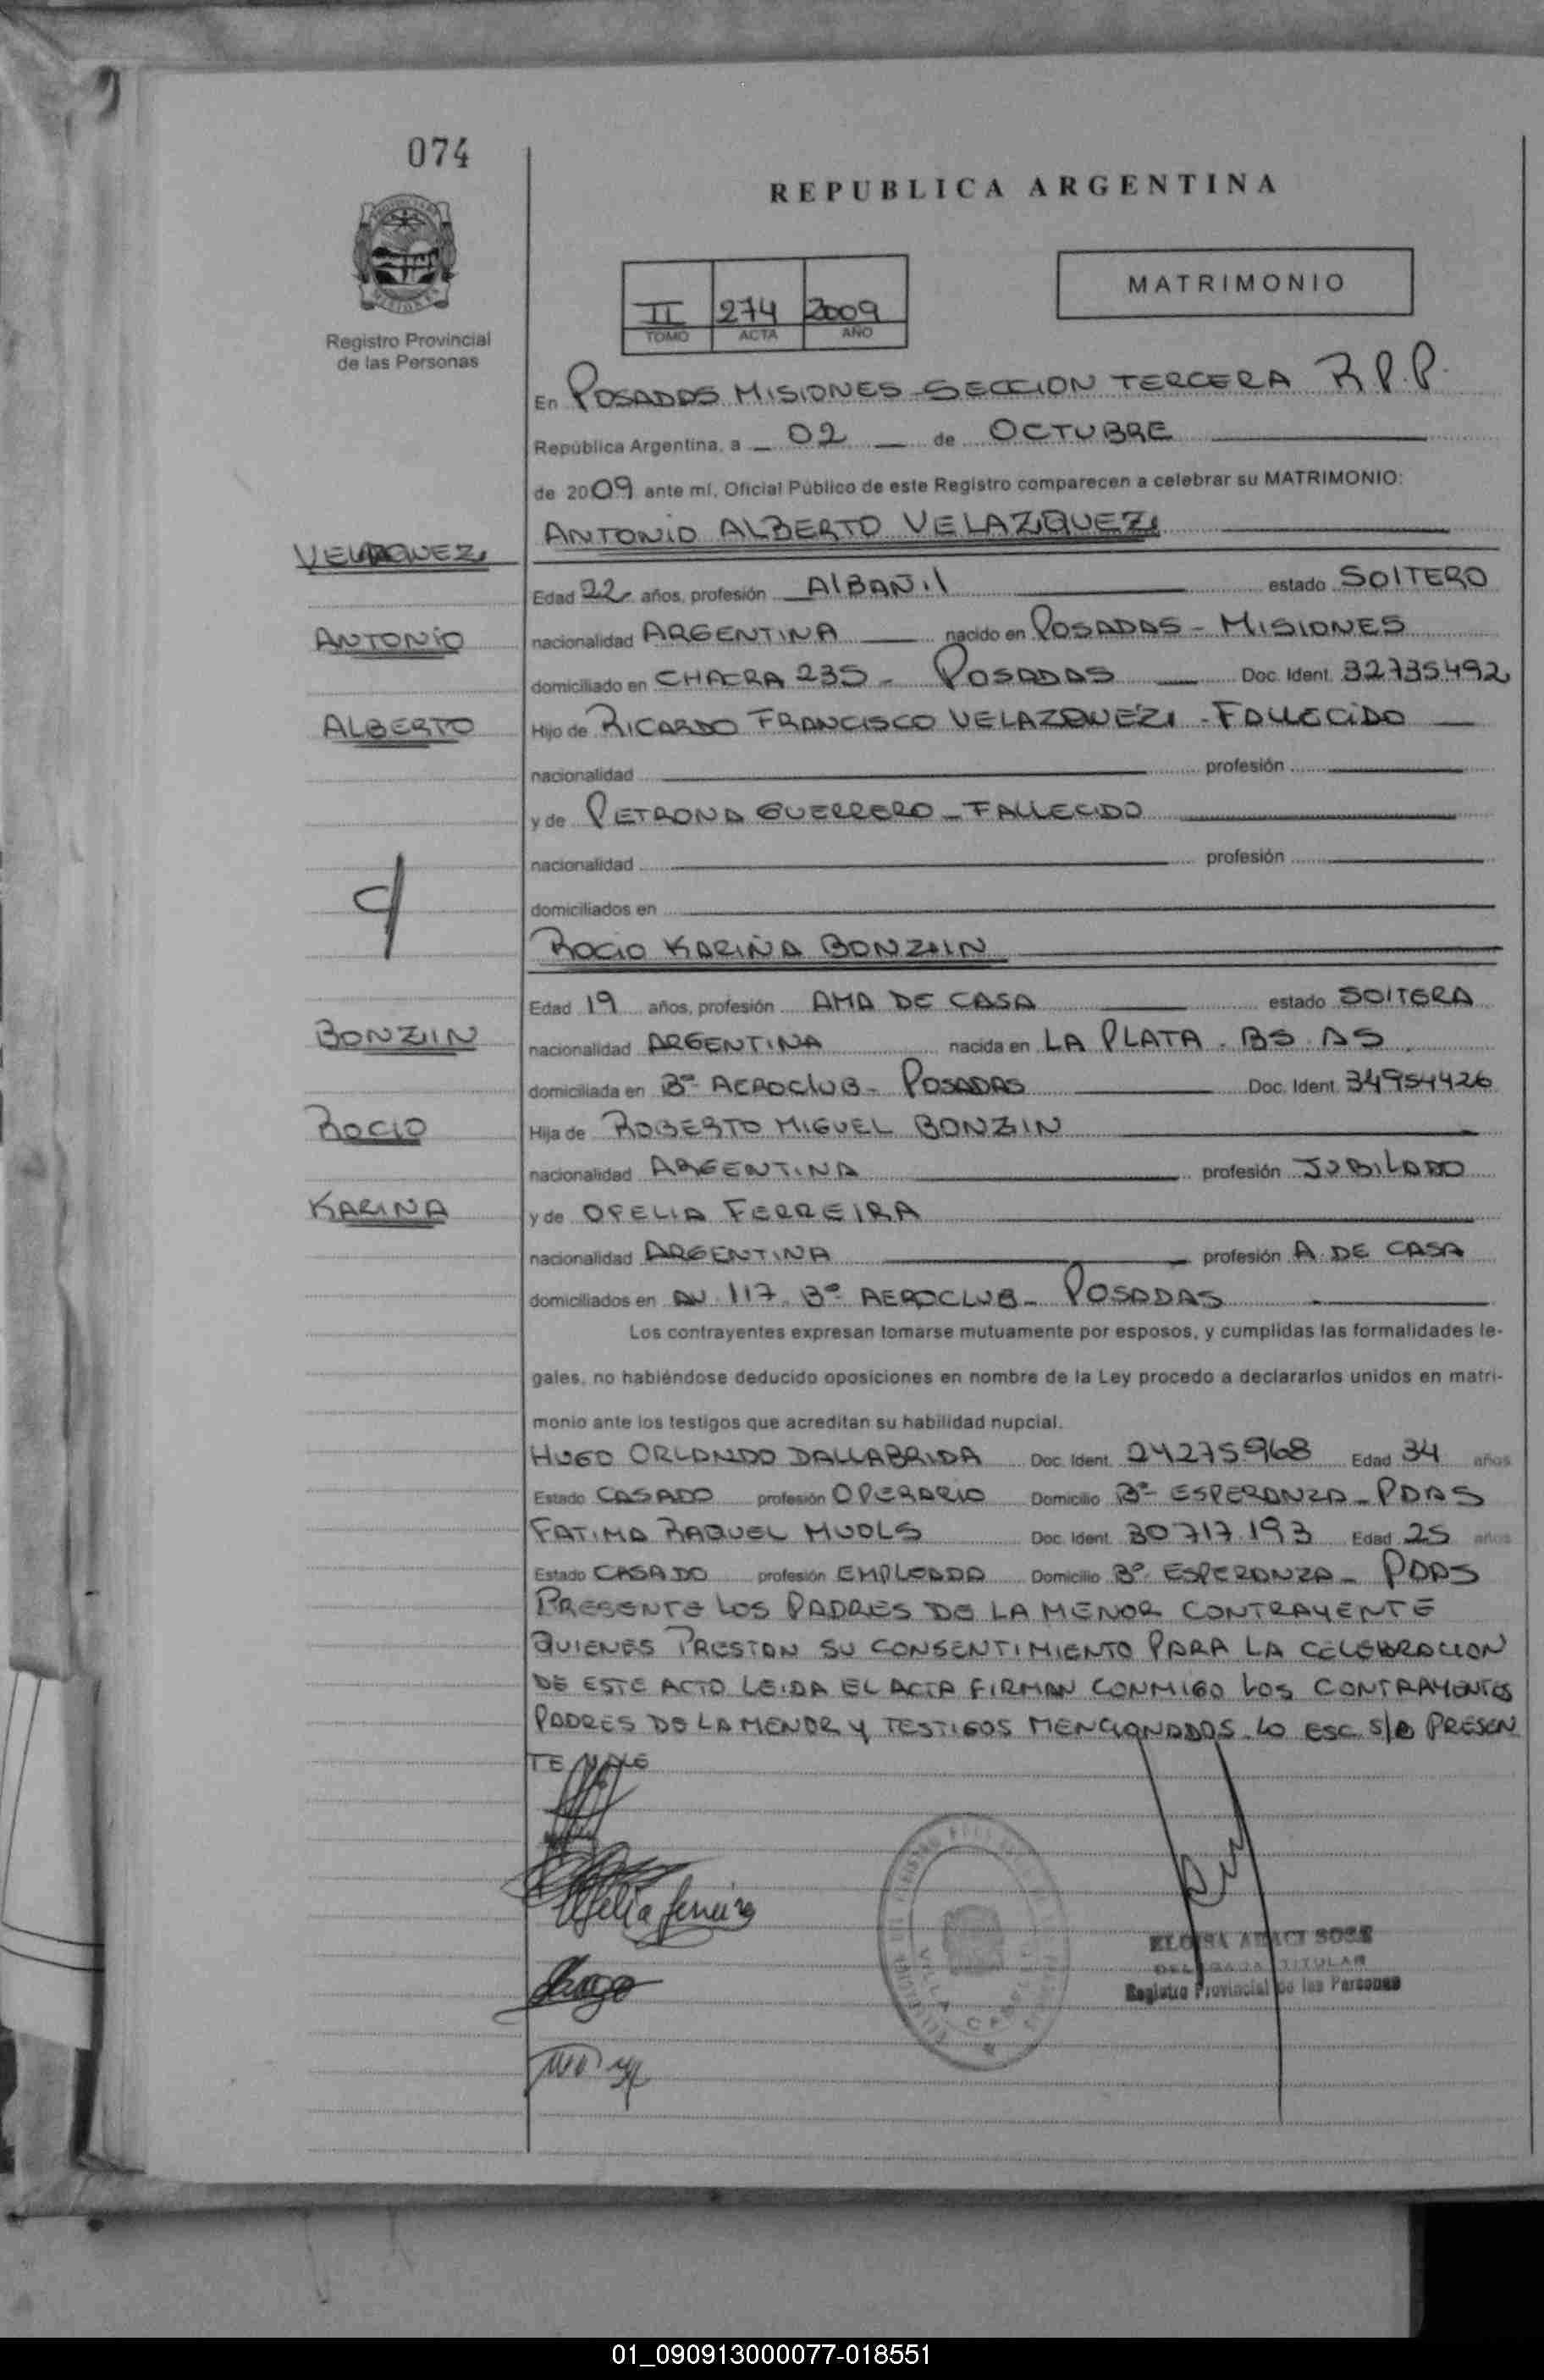 074
REPUBLICA ARGENTINA
MATRIMONIO
II 274 2009
TOMO ACTA AÑO
Registro Provincial
de las Personas
En POSADAS MISIONES SECCION TERCERA R.P.P.
República Argentina, a 02 de OCTUBRE
de 2009 ante mí, Oficial Público de este Registro comparecen a celebrar su MATRIMONIO:
ANTONIO ALBERTO VELAZQUEZ
VELAZQUEZ
Edad 22 años, profesión AlBAÑil estado SOlTERO
ANTONIO
nacionalidad ARGENTINA nacido en POSADAS - MISIONES
domiciliado en CHACRA 235 - POSADAS Doc. Ident. 32735492
ALBERTO
Hijo de RICARDO FRANCISCO VELAZQUEZ - FALLECIDO
nacionalidad profesión
y de PETRONA GUERRERO - FALLECIDO
nacionalidad profesión
domiciliados en
ROCIO KARINA BONZIIN
Edad 19 años, profesión AMA DE CASA estado SOlTERA
BONZIIN
nacionalidad ARGENTINA nacida en LA PLATA - BS. AS
domiciliada en Bº AEROClUB - POSADAS Doc. Ident. 34954426
ROCIO
Hija de ROBERTO MIGUEL BONZIIN
nacionalidad ARGENTINA profesión JUBILADO
KARINA
y de OFELIA FERREIRA
nacionalidad ARGENTINA profesión A. DE CASA
domiciliados en AV. 117. Bº AEROCLUB - POSADAS
Los contrayentes expresan tomarse mutuamente por esposos, y cumplidas las formalidades le-
gales, no habiéndose deducido oposiciones en nombre de la Ley procedo a declararlos unidos en matri-
monio ante los testigos que acreditan su habilidad nupcial.
HUGO ORLANDO DALLABRIDA Doc. Ident. 24275.968 Edad 34 años
Estado CASADO profesión OPERARIO Domicilio Bº ESPERANZA - PDAS
FATIMA RAQUEL Doc. Ident. 30717.193 Edad 25 años
Estado CASADO profesión EMPLEADA Domicilio Bº ESPERANZA - PDAS
PRESENTE LOS PADRES DE LA MENOR CONTRAYENTE
QUIENES PRESTAN SU CONSENTIMIENTO PARA LA CELEBRACION
DE ESTE ACTO LEIDA EL ACTA FIRMAN CONMIGO LOS CONTRAYENTES
PADRES DE LA MENOR Y TESTIGOS MENCIONADOS. LO ESC. S/B PRESEN
TE VALE
Ofelia Ferreira
VILLA CABELLO
DELEGADA TITULAR
Registro Provincial de las Personas
01_090913000077-018551